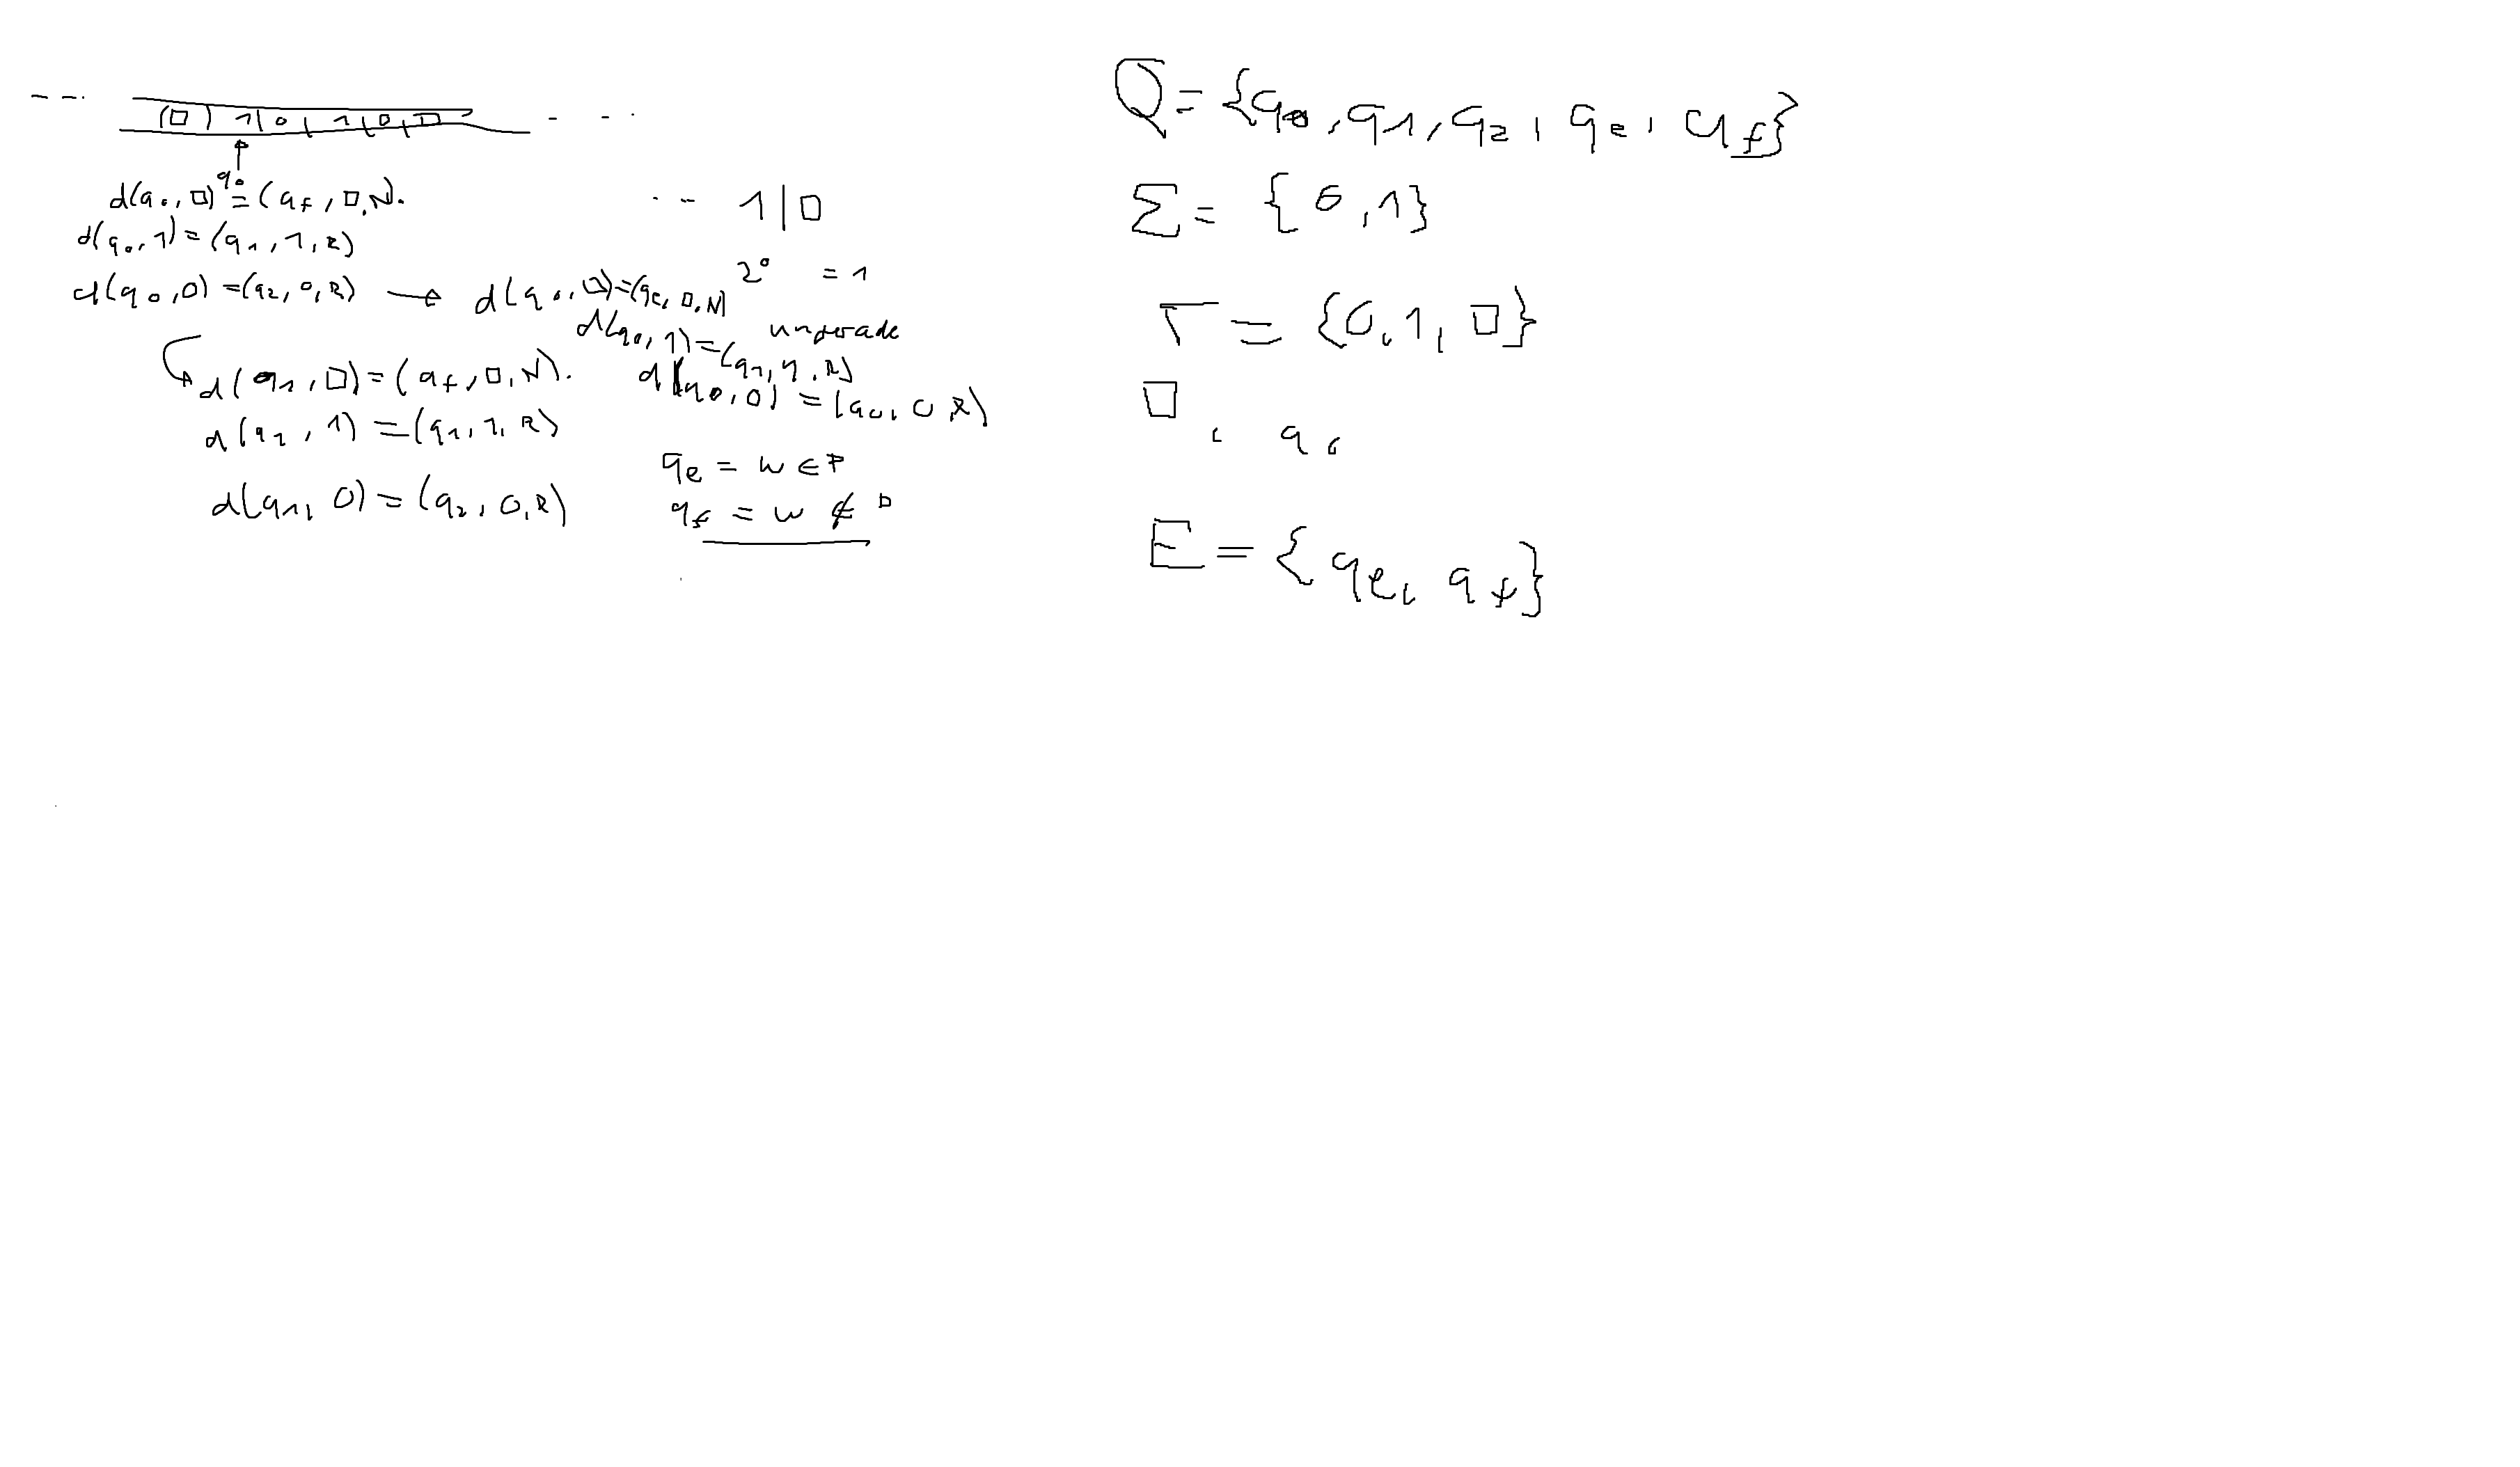 --- □ | 1 | 0 | 1 | 0 | □ - - -
q₀
d(q₀, □) = (q_f, □, N).
d(q₀, 1) = (q₁, 1, R)
d(q₀, 0) = (q₂, 0, R) → d(q₀, □) = (q_e, □, N)
d(q₀, 1) = (q₁, 1, R)
d(q₀, 0) = (q₀, 0, R)
d(q₁, □) = (q_f, □, N).
d(q₂, 1) = (q₁, 1, R)
d(q₁, 0) = (q₂, 0, R)
-- 1 | □
2⁰ = 1
ungerade
q_e = w ∈ P
q_f = w ∉ P
Q = {q₀, q₁, q₂, q_e, q_f}
Σ = {0, 1}
Γ = {0, 1, □}
□, q₀
E = {q_e, q_f}